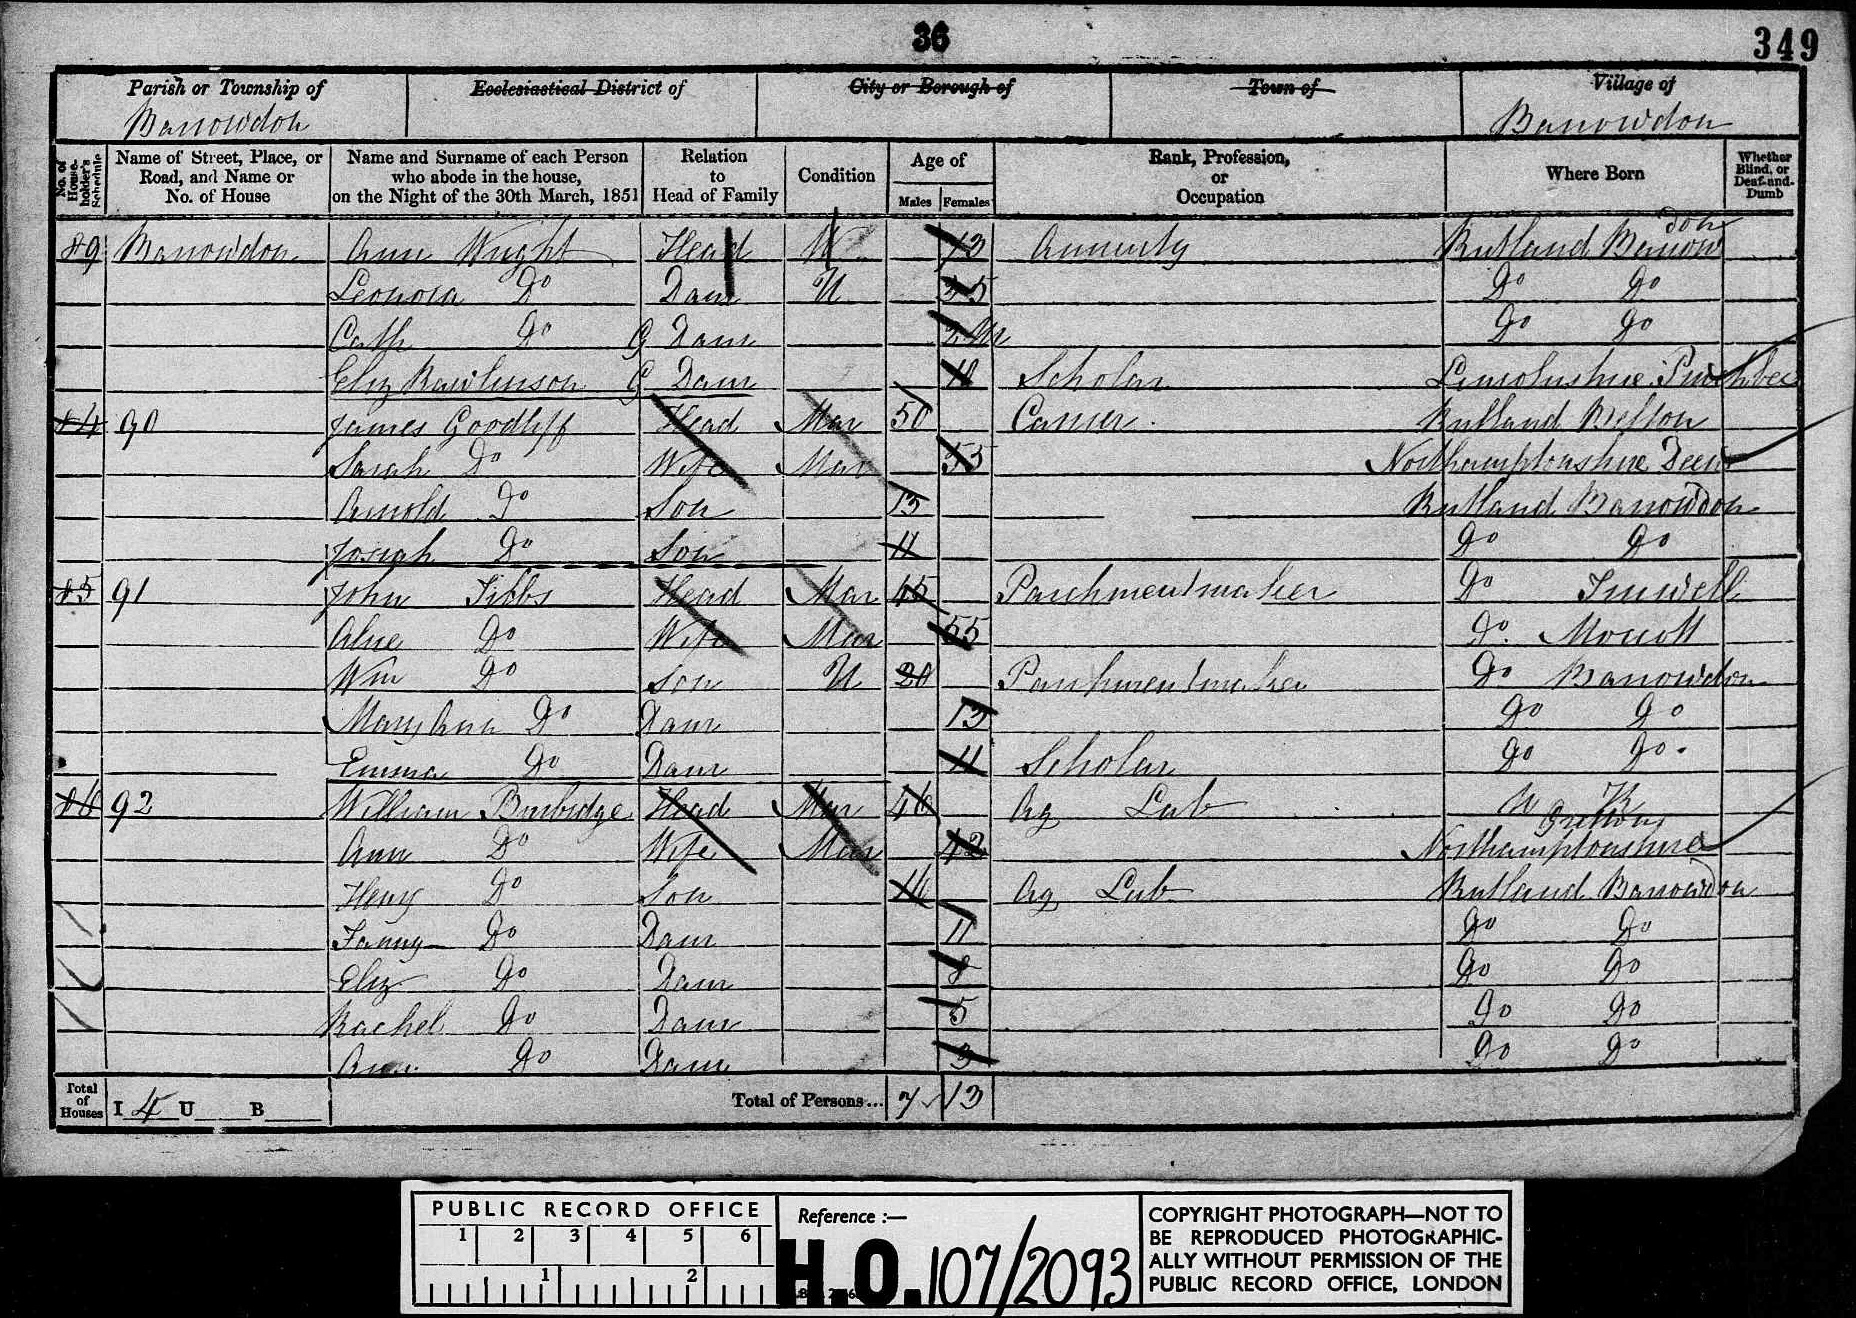 36
349
Parish or Township of
Barrowdon
Ecclesiastical District of
City or Borough of
Town of
Village of
Barrowdon
No. of House-holder's Schedule
Name of Street, Place, or Road, and Name or No. of House
Name and Surname of each Person who abode in the house, on the Night of the 30th March, 1851
Relation to Head of Family
Condition
Age of
Males Females
Rank, Profession, or Occupation
Where Born
Whether Blind, or Deaf-and-Dumb
89 Barrowdon Ann Wright Head W 73 Annuity Rutland Barrowdon
Leonora Do Daur U 35 Do Do
Cath Do G Daur Do Do
Eliz Rawlinson G Daur Scholar Lincolnshire Pinchbec
84 90 James Goodliff Head Mar 50 Carrier Rutland Belton
Sarah Do Wife Mar Northamptonshire Deen
Arnold Do Son 13 Rutland Barrowdon
Josiah Do Son 11 Do Do
85 91 John Tibbs Head Mar 45 Parchmentmaker Do Tinwell
Do Wife Mar 55 Do Morcott
Wm Do Son U 20 Parchmentmaker Do Barrowdon
Mary Ann Do Daur 13 Do Do
Emma Do Daur 11 Scholar Do Do
86 92 William Burbidge Head Mar 46 Ag Lab N K
Ann Do Wife Mar 42 Northamptonshire Gretton
Henry Do Son 16 Ag Lab Rutland Barrowdon
Fanny Do Daur 11 Do Do
Eliz Do Daur 8 Do Do
Rachel Do Daur 5 Do Do
Ann Do Daur 3 Do Do
Total of Houses I 4 U B Total of Persons... 7 13
PUBLIC RECORD OFFICE
1 2 3 4 5 6
1 2
Reference :—
H.O. 107/2093
COPYRIGHT PHOTOGRAPH—NOT TO
BE REPRODUCED PHOTOGRAPHIC-
ALLY WITHOUT PERMISSION OF THE
PUBLIC RECORD OFFICE, LONDON